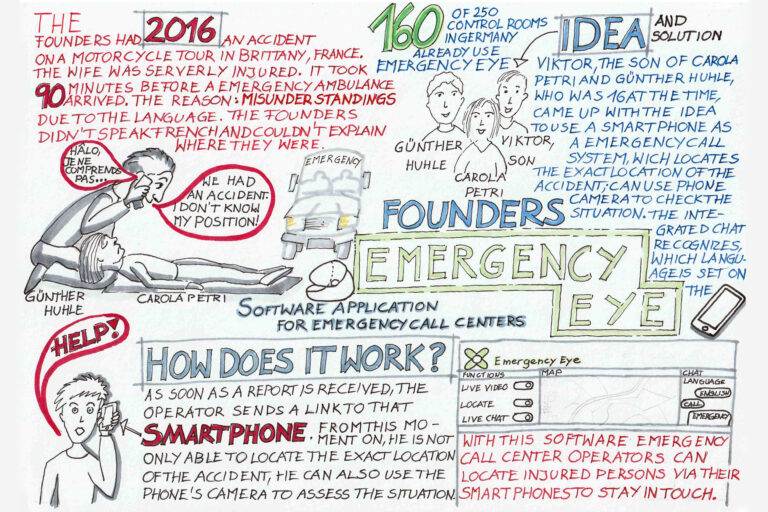 THE
FOUNDERS HAD 2016 AN ACCIDENT
ON A MOTORCYCLE TOUR IN BRITTANY, FRANCE.
THE WIFE WAS SERVERLY INJURED. IT TOOK
90 MINUTES BEFORE A EMERGENCY AMBULANCE
ARRIVED. THE REASON: MISUNDERSTANDINGS
DUE TO THE LANGUAGE. THE FOUNDERS
DIDN'T SPEAK FRENCH AND COULDN'T EXPLAIN
WHERE THEY WERE.
HALO,
JE NE
COMPRENDS
PAS...
WE HAD
AN ACCIDENT.
I DON'T KNOW
MY POSITION!
EMERGENCY
GÜNTHER
HUHLE
CAROLA PETRI
160 OF 250
CONTROL ROOMS
IN GERMANY
ALREADY USE
EMERGENCY EYE
GÜNTHER
HUHLE
CAROLA
PETRI
VIKTOR,
SON
FOUNDERS
IDEA AND
SOLUTION
VIKTOR, THE SON OF CAROLA
PETRI AND GÜNTHER HUHLE,
WHO WAS 16 AT THE TIME,
CAME UP WITH THE IDEA
TO USE A SMARTPHONE AS
A EMERGENCY CALL
SYSTEM, WICH LOCATES
THE EXACT LOCATION OF THE
ACCIDENT, CAN USE PHONE
CAMERA TO CHECK THE
SITUATION. THE INTE-
GRATED CHAT
RECOGNIZES,
WHICH LANGU-
AGE IS SET ON
THE
EMERGENCY
EYE
SOFTWARE APPLICATION
FOR EMERGENCY CALL CENTERS
HELP!
HOW DOES IT WORK?
AS SOON AS A REPORT IS RECEIVED, THE
OPERATOR SENDS A LINK TO THAT
SMARTPHONE. FROM THIS MO-
MENT ON, HE IS NOT
ONLY ABLE TO LOCATE THE EXACT LOCATION
OF THE ACCIDENT, HE CAN ALSO USE THE
PHONE'S CAMERA TO ASSESS THE SITUATION.
Emergency Eye
FUNCTIONS
LIVE VIDEO
LOCATE
LIVE CHAT
MAP
CHAT
LANGUAGE
ENGLISH
CALL
EMERGENCY
WITH THIS SOFTWARE EMERGENCY
CALL CENTER OPERATORS CAN
LOCATE INJURED PERSONS VIA THEIR
SMARTPHONES TO STAY IN TOUCH.